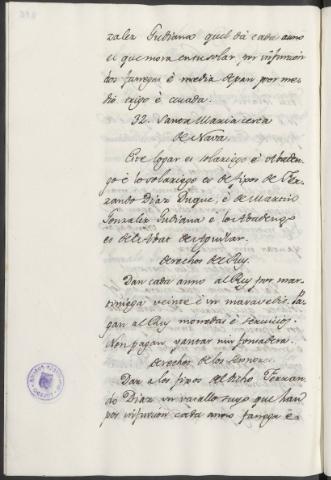 zalez Gudiana quel dá cada anno
el que mora en su solar, por infurcion
dos fanegas è media de pan por me-
dio trigo è cevada.
32. Santa Maria cerca
de Nava.
Este logar es solariego è Abaden-
go è lo solariego es de fixos de Fer-
nando Diaz Duque, è de Martin
Gonzalez Gudiana è lo Abadengo
es del Abat de Aguilar.
derechos del Rey.
Dan cada anno al Rey por mar-
tiniega veinte è un maravedis. Pa-
gan al Rey monedas è servicios.
Non pagan yantar nin fonsadera.
derechos de los Sennores.
Dan a los fixos del dicho Fernan-
do Diaz un vasallo suyo que han
por infurcion cada anno fanega è